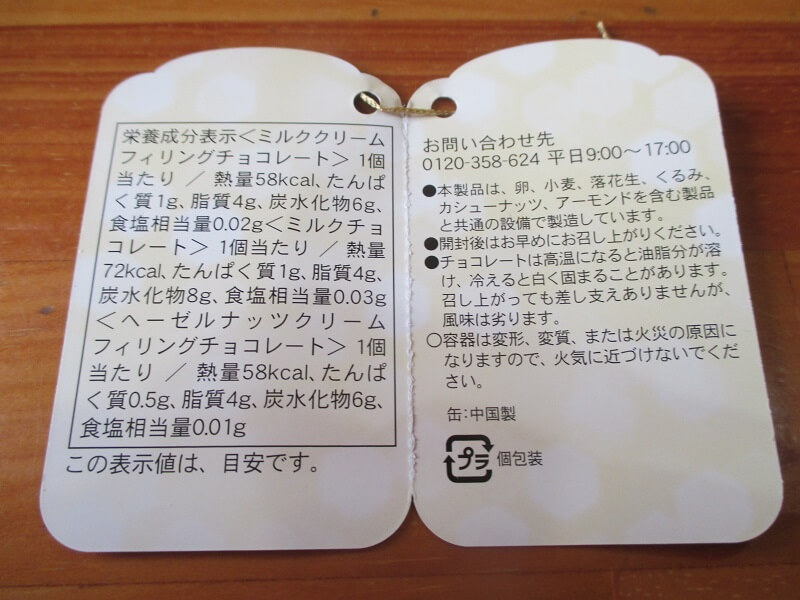 栄養成分表示＜ミルククリーム
フィリングチョコレート＞ 1個
当たり ／ 熱量58kcal、たんぱ
く質1g、脂質4g、炭水化物6g、
食塩相当量0.02g＜ミルクチョ
コレート＞ 1個当たり ／ 熱量
72kcal、たんぱく質1g、脂質4g、
炭水化物8g、食塩相当量0.03g
＜ヘーゼルナッツクリーム
フィリングチョコレート＞ 1個
当たり ／ 熱量58kcal、たんぱ
く質0.5g、脂質4g、炭水化物6g、
食塩相当量0.01g
この表示値は、目安です。
お問い合わせ先
0120-358-624 平日9:00～17:00
●本製品は、卵、小麦、落花生、くるみ、
カシューナッツ、アーモンドを含む製品
と共通の設備で製造しています。
●開封後はお早めにお召し上がりください。
●チョコレートは高温になると油脂分が溶
け、冷えると白く固まることがあります。
召し上がっても差し支えありませんが、
風味は劣ります。
○容器は変形、変質、または火災の原因に
なりますので、火気に近づけないでくだ
さい。
缶：中国製
プラ 個包装